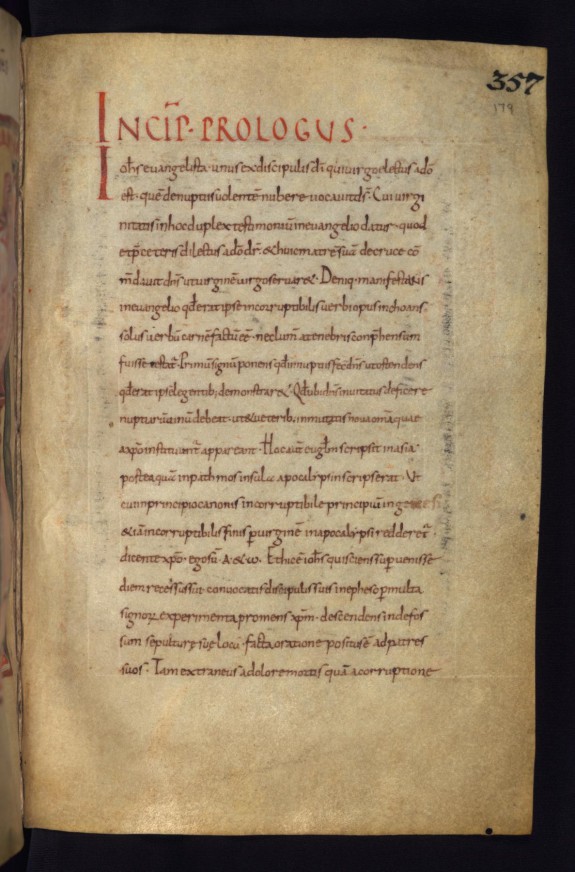 357
179
INCIP· PROLOGUS·
Iohs evangelista· unus ex discipulis di qui virgo electus a do
est· que de nuptiis volente nubere vocavit ds· Cui virgi
nitatis in hoc duplex testimoniu in evangelio datur· quod
et p ceteris dilectus a do dr· & huic matre sua de cruce co
mdavit dns ut virgine virgo servar&· Deniq· manifestans
in evangelio qd erat ipse incorruptibilis verbi opus inchoans
solus verbu carne factu ee· nec lumen a tenebris conphensum
fuisse Primu signu ponens qd in nuptiis fec dns ut ostendens
qd erat ipse legentib; demonstrar&· Qd ubi dns invitatus deficere
nuptiaru vinu debeat· ut & veterib; inmutatis nova omia quae
a xpo instituunt appareant· Hoc aut evglm scripsit in asia·
postea qua in pathmos insula apocalypsin scripserat· Ut
cui in principio canonis incorruptibile principiu in genesi
& ia incorruptibilis finis p virgine in apocalypsi redderet·
dicente xpo· ego su· A· & ω· Et hic e iohs qui sciens supvenisse
diem recessus sui· convocatis discipulis suis in epheso p multa
signor experimenta promens xpm· descendens in defos
sum sepulture sue locu· facta oratione positus e ad patres
suos· Tam extraneus a dolore mortis qua a corruptione